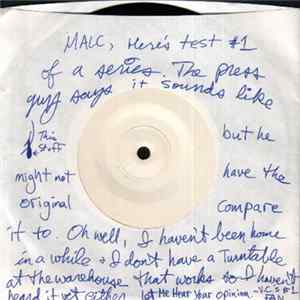 MALC, Here's test #1
of a series. The press
guy says it sounds like
This Stuff but he
might not have the
original compare
it to. Oh well, I haven't been home
in a while & I don't have a Turntable
at the warehouse that works so I haven't
heard it yet either. Let Me Hear Your Opinion.